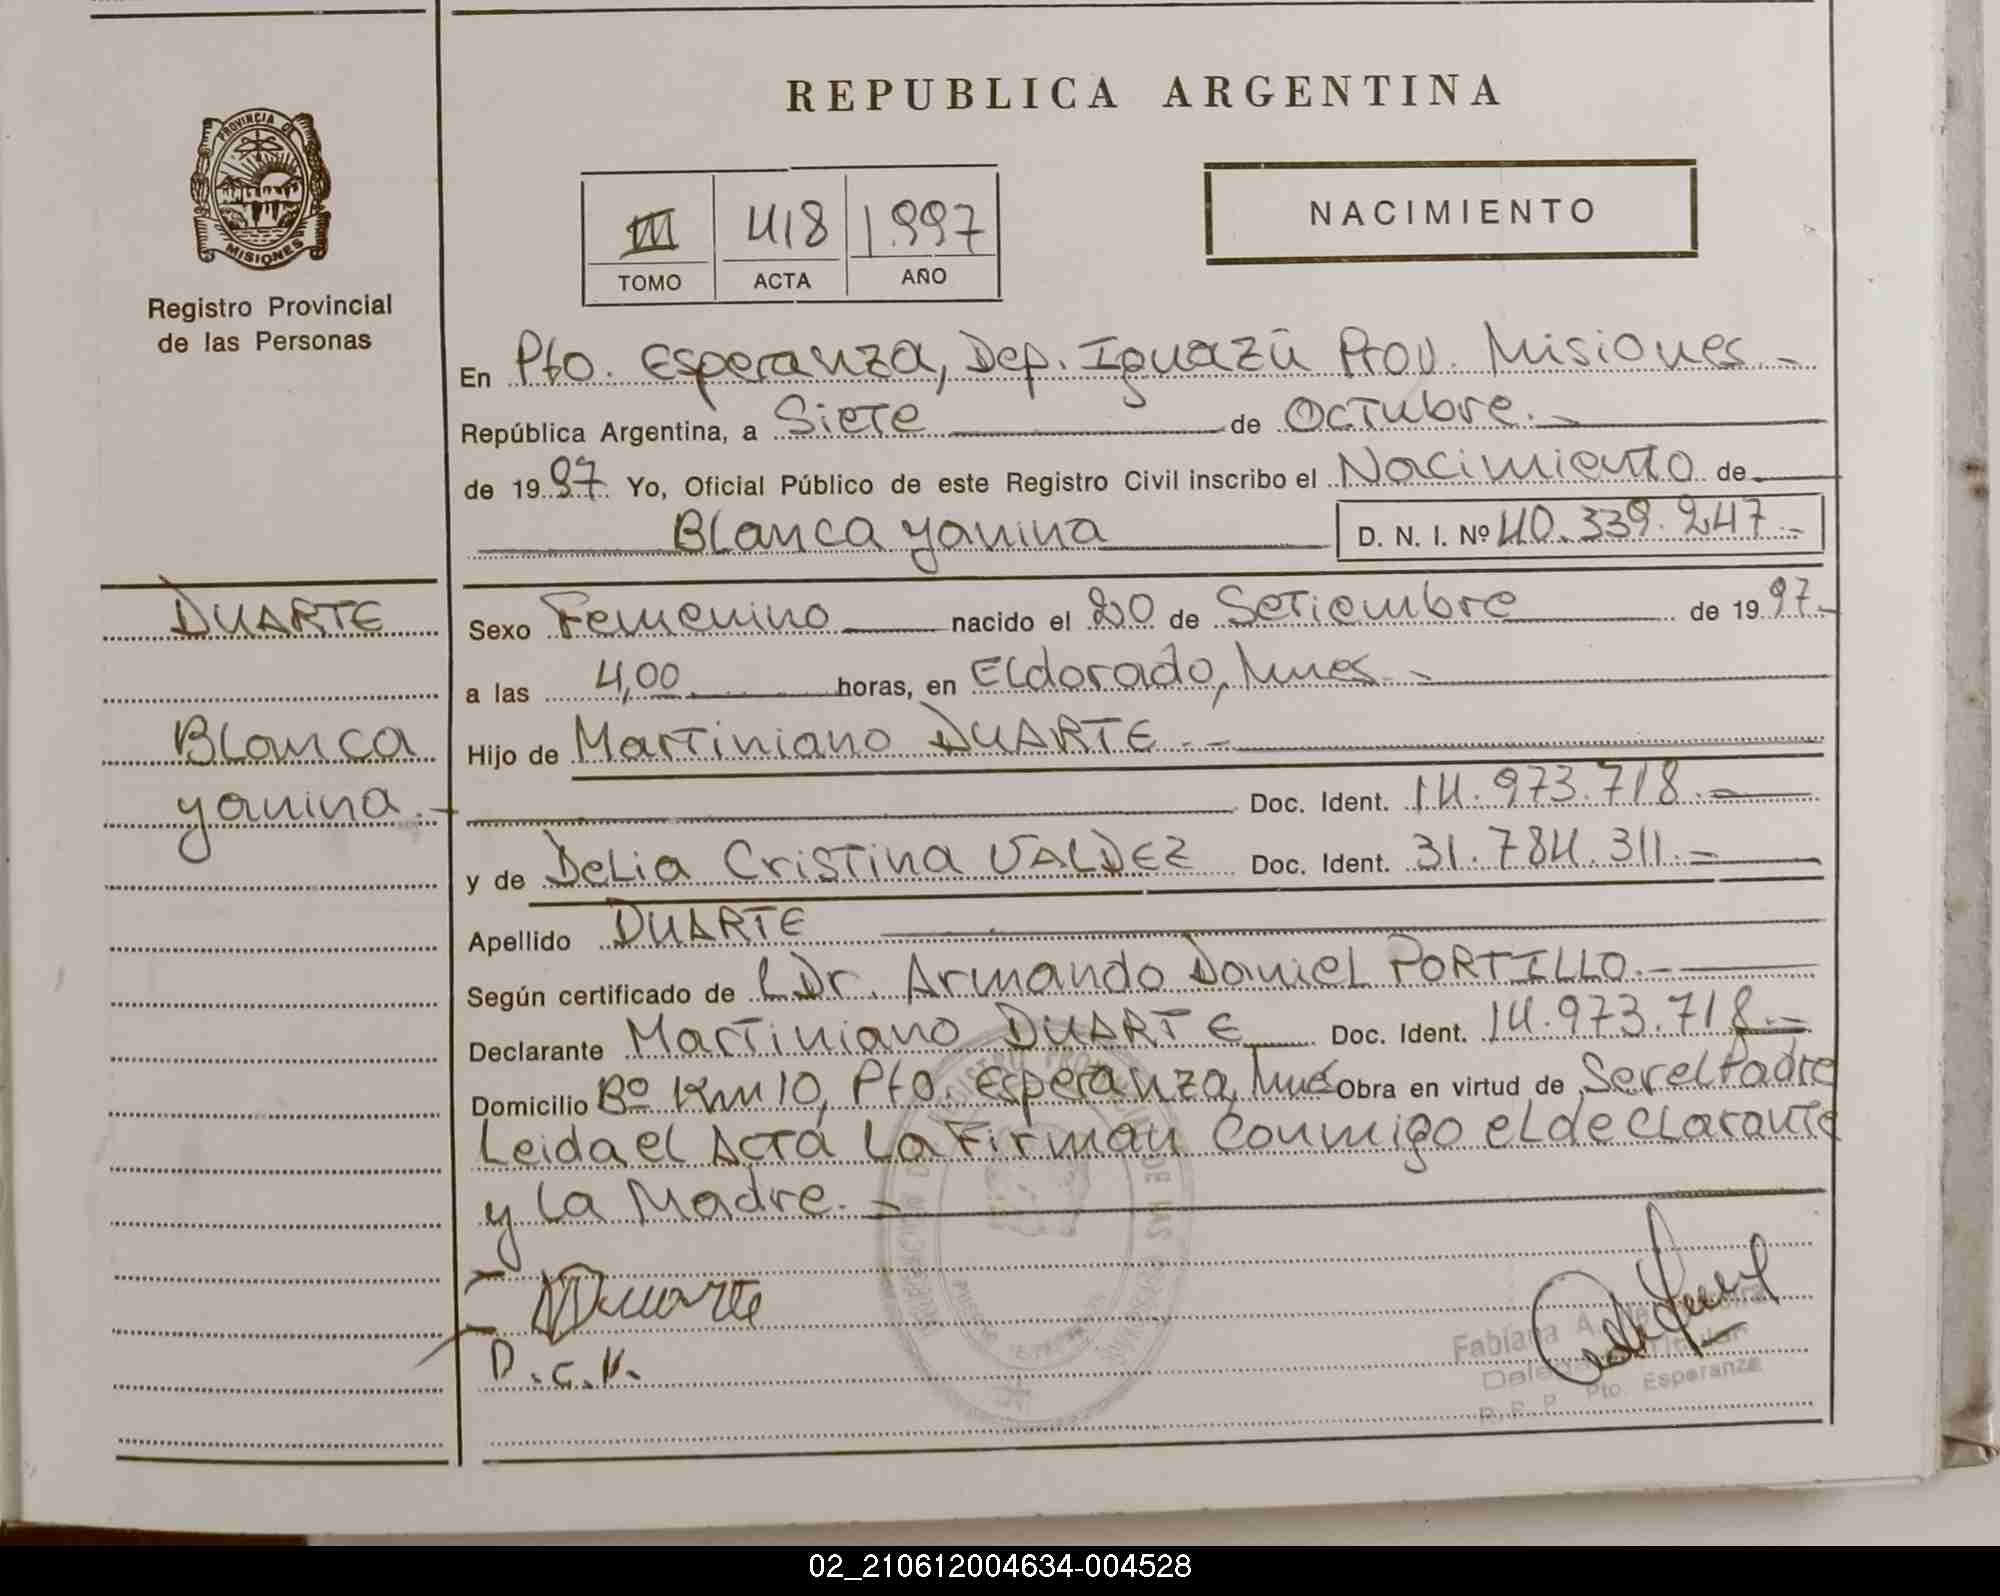 REPUBLICA ARGENTINA
PROVINCIA DE
MISIONES
Registro Provincial
de las Personas
III 418 1.997
TOMO ACTA AÑO
NACIMIENTO
En Pto. Esperanza, Dep. Iguazú Prov. Misiones.-
República Argentina, a Siete de Octubre.-
de 1997. Yo, Oficial Público de este Registro Civil inscribo el Nacimiento de
Blanca yanina D. N. I. Nº 40.339.247.-
DUARTE
Blanca
yanina.-
Sexo Femenino nacido el 20 de Setiembre de 1997.-
a las 4,00 horas, en Eldorado, Mnes.-
Hijo de Martiniano DUARTE.-
Doc. Ident. 14.973.718.-
y de Delia Cristina VALDEZ Doc. Ident. 31.784.311.-
Apellido DUARTE
Según certificado de l Dr. Armando Daniel PORTILLO.-
Declarante Martiniano DUARTE Doc. Ident. 14.973.718.-
Domicilio Bº Km 10, Pto. Esperanza, Mnes Obra en virtud de Ser el Padre
Leida el Acta La Firman Conmigo el declarante
y La Madre.-
Duarte
D.C.V.
Fabiana A.
Pto. Esperanza
02_210612004634-004528